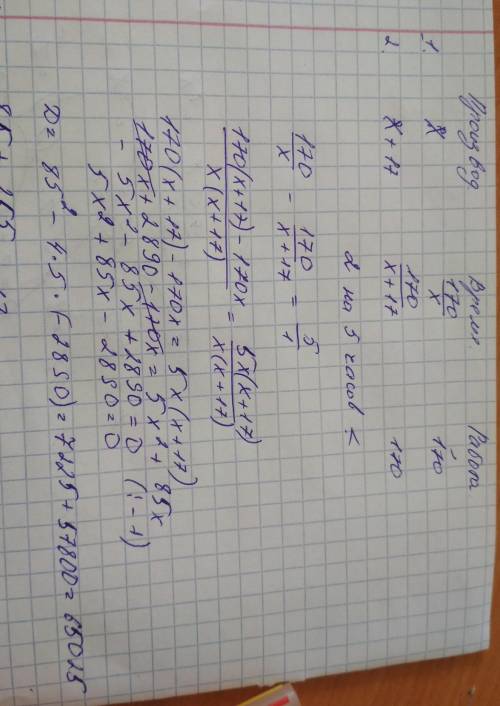 Производ Время. Работа
1. x 170/x 170
2. x + 17 170/(x+17) 170
2 на 5 часов <
170/x - 170/(x+17) = 5/1
(170(x+17) - 170x)/(x(x+17)) = 5x(x+17)/(x(x+17))
170(x+17) - 170x = 5x(x+17)
170x + 2890 - 170x = 5x² + 85x
- 5x² - 85x + 2890 = 0 (: -1)
5x² + 85x - 2890 = 0
D = 85² - 4·5·(-2890) = 7225 + 57800 = 65025